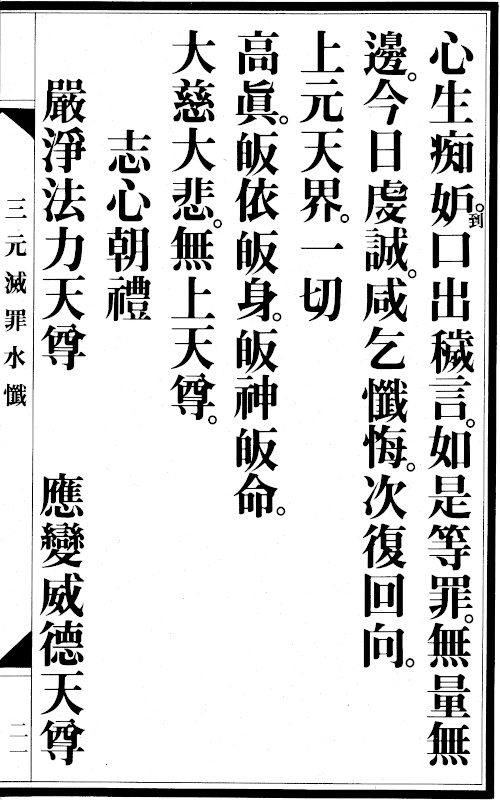 心生痴妒。到口出穢言。如是等罪。無量無
邊。今日虔誠。咸乞懺悔。次復回向。
上元天界。一切
高眞。皈依皈身。皈神皈命。
大慈大悲。無上天尊。
志心朝禮
嚴淨法力天尊　應變威德天尊
三元滅罪水懺
二一